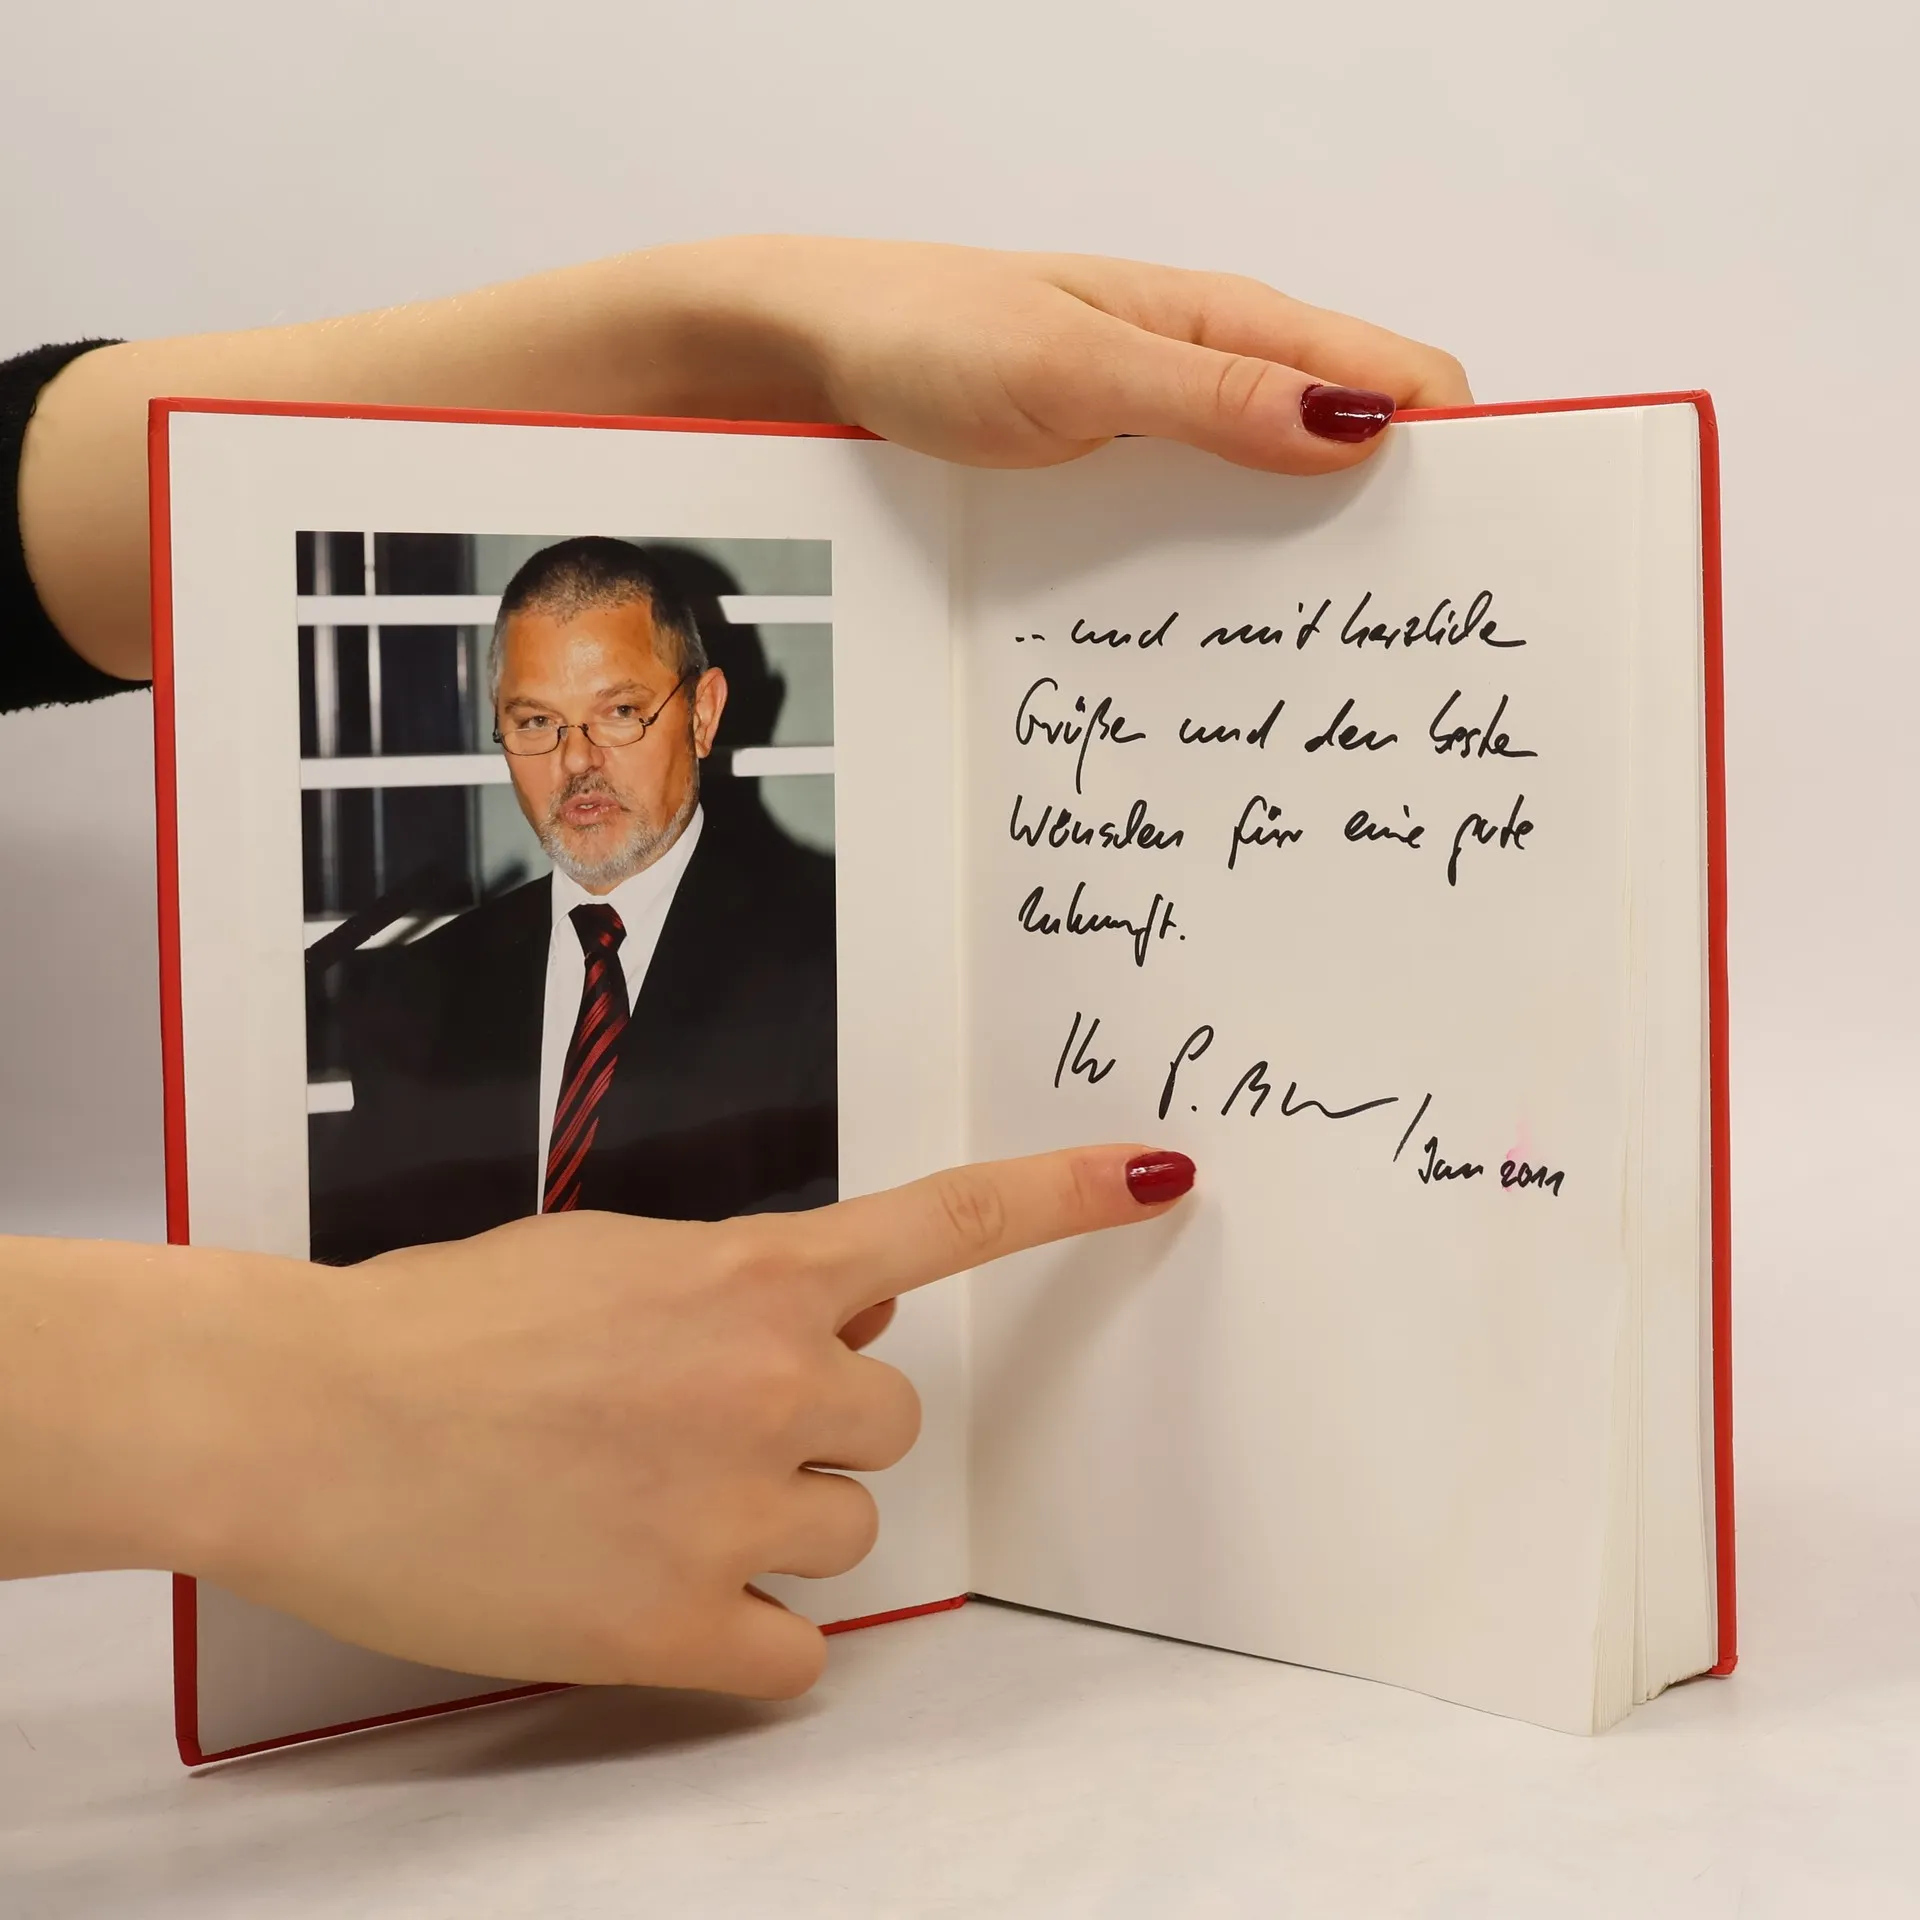 .. und mit herzliche
Grüßen und den besten
Wünschen für eine gute
Zukunft.
Ihr P.
/Jan 2011